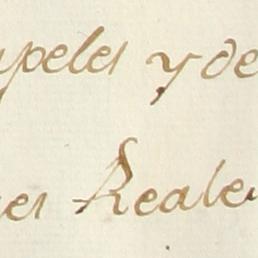 apeles y de
es Reales